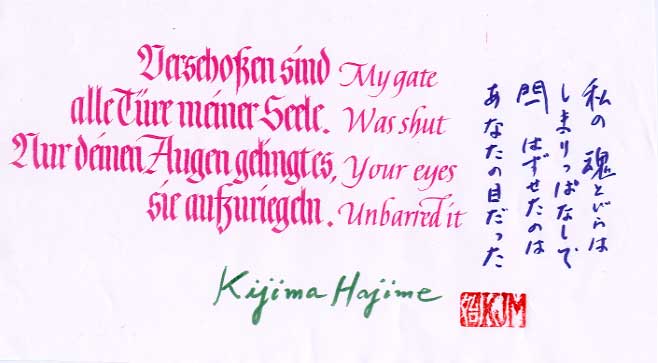 Verschoßen sind
alle Türe meiner Seele.
Nur deinen Augen gelingt es,
sie aufzuriegeln.
My gate
Was shut
Your eyes
Unbarred it
私の 魂とびらは
しまりっぱなしで
閂 はずせたのは
あなたの目だった
Kijima Hajime
KJM